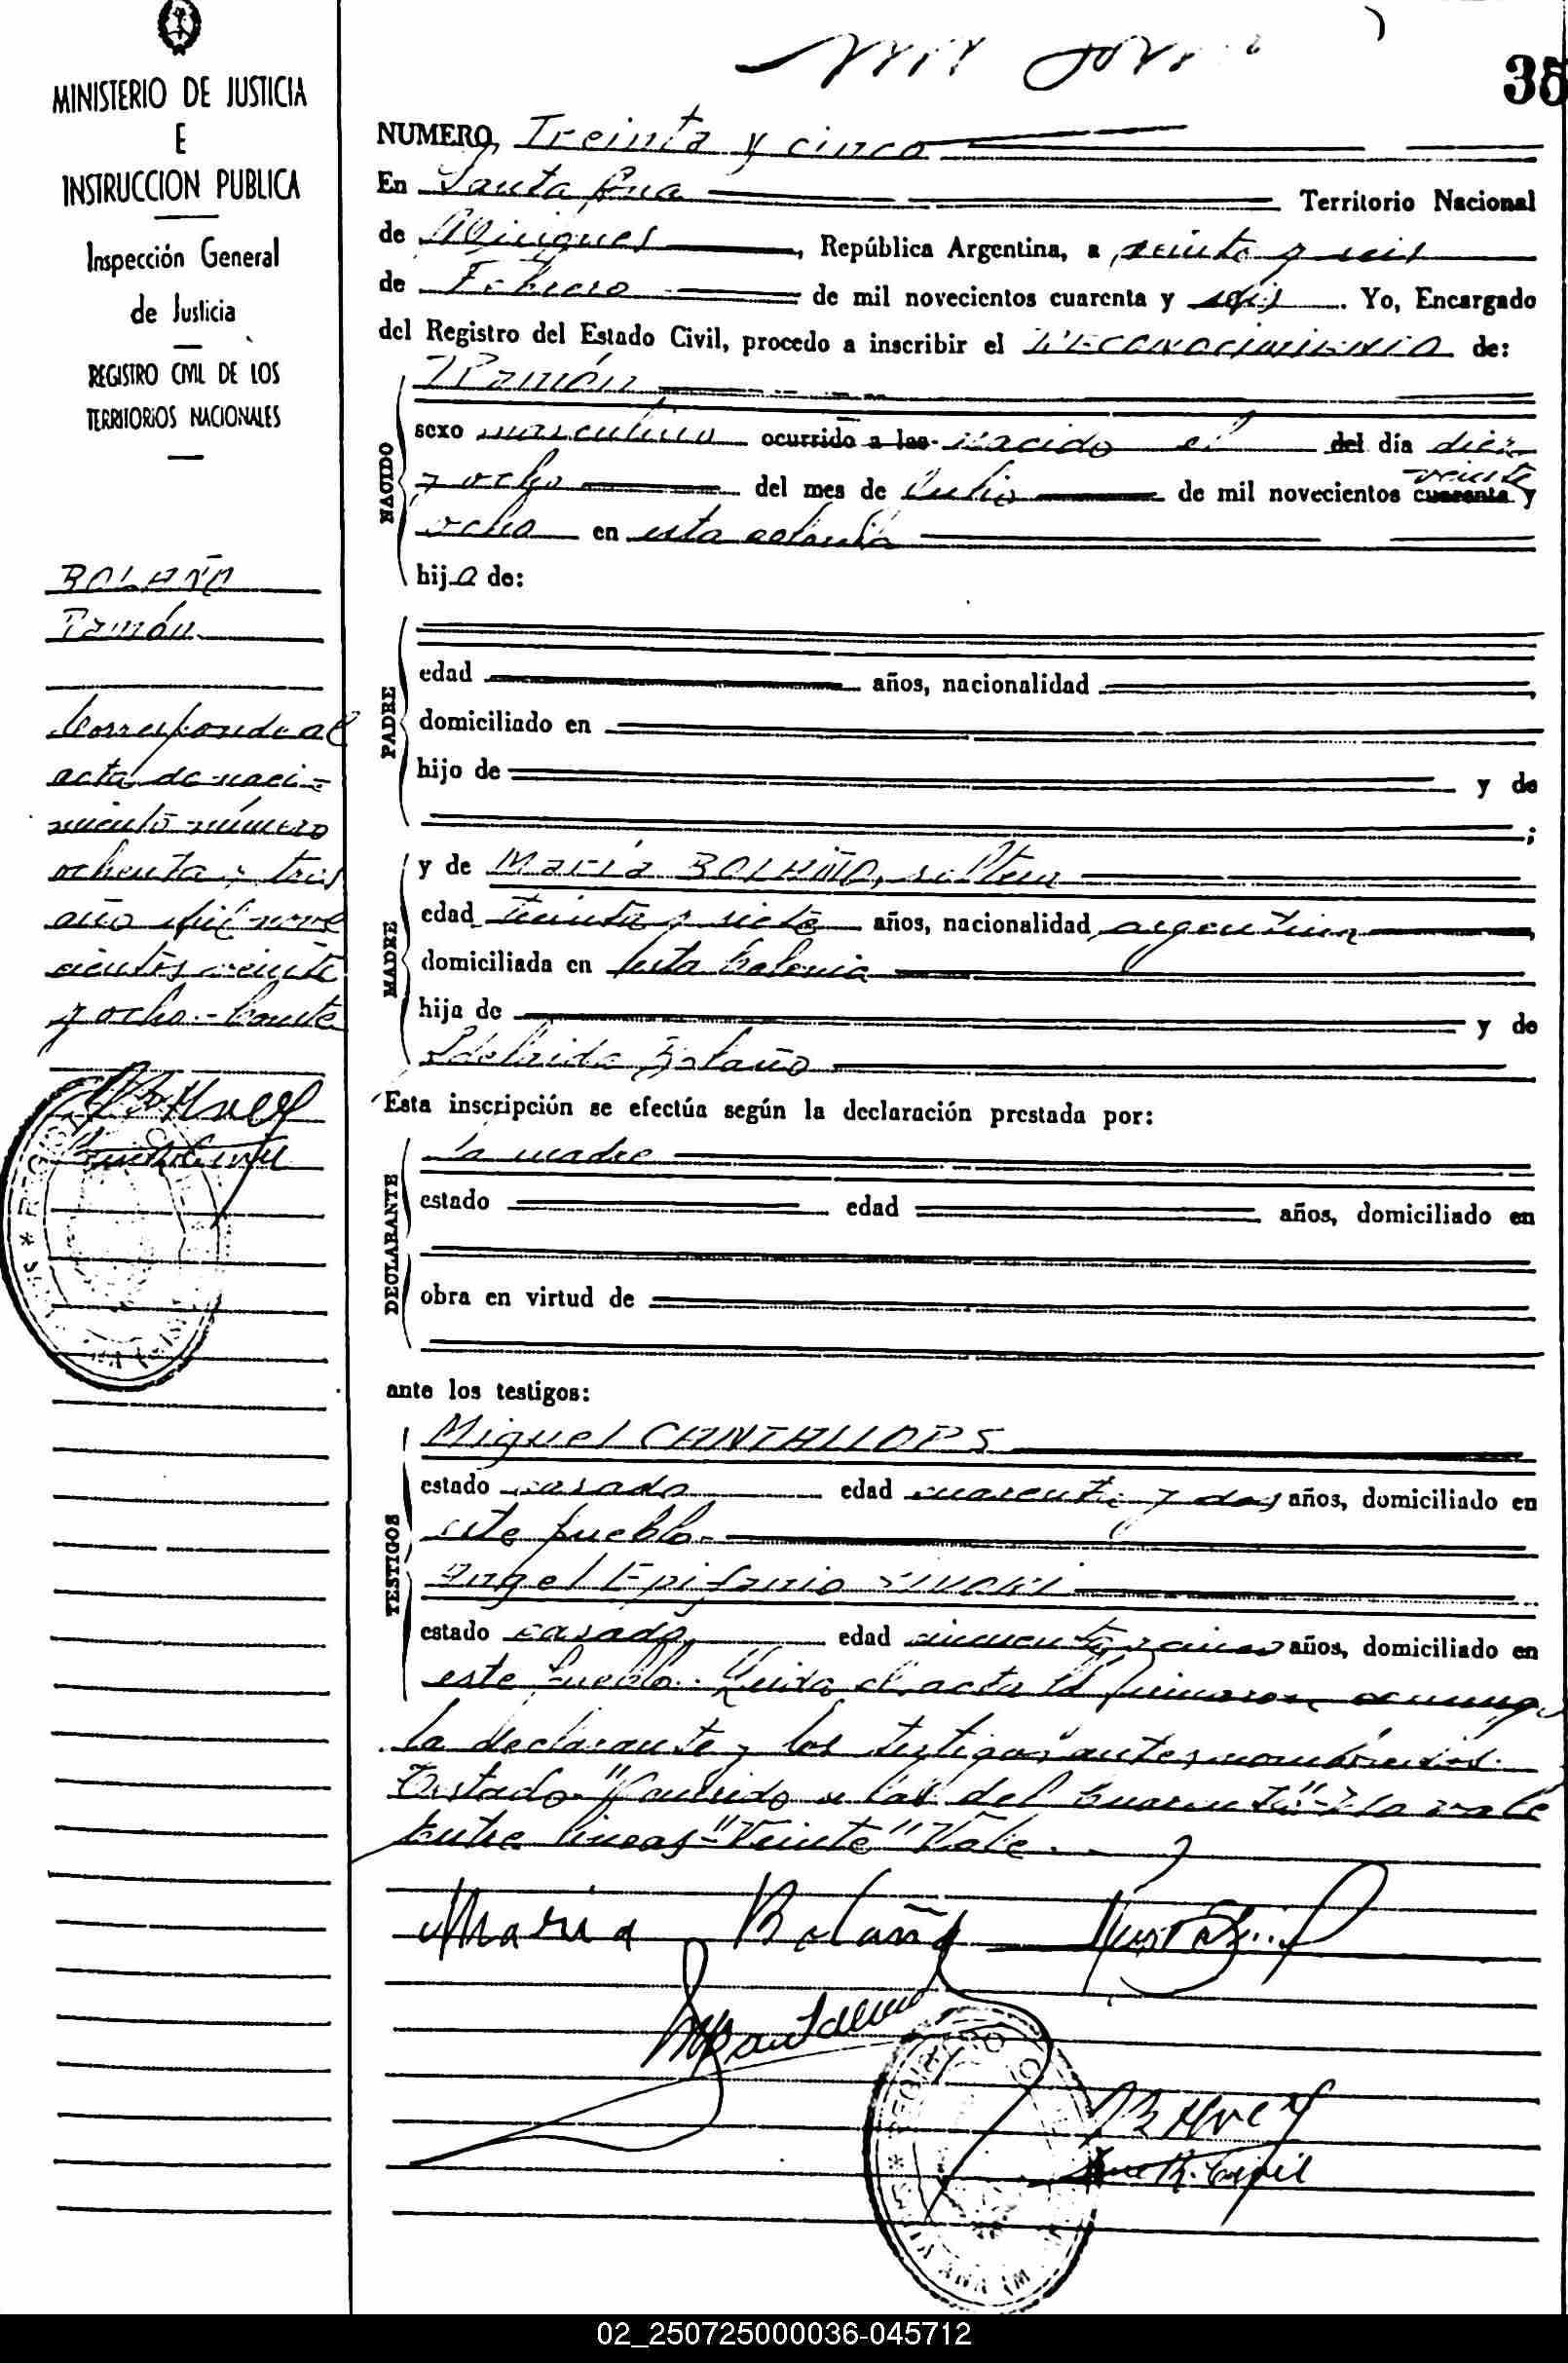 MINISTERIO DE JUSTICIA
E
INSTRUCCION PUBLICA
Inspección General
de Justicia
REGISTRO CIVIL DE LOS
TERRITORIOS NACIONALES
BOLAÑO
Ramón
Corresponde al
acta de naci-
miento número
ochenta y tres
año mil nove
cientos veinte
y ocho.- Conste
35
NUMERO Treinta y cinco
En Santa Ana Territorio Nacional
de Misiones, República Argentina, a veinte y seis
de Febrero de mil novecientos cuarenta y seis. Yo, Encargado
del Registro del Estado Civil, procedo a inscribir el RECONOCIMIENTO de:
NACIDO
Ramón
sexo masculino ocurrido a las nacido el del día diez
y ocho del mes de Julio de mil novecientos cuarenta veinte y
ocho en esta colonia
hijo de:
PADRE
edad años, nacionalidad
domiciliado en
hijo de y de
;
MADRE
y de María BOLAÑO, soltera
edad treinta y siete años, nacionalidad argentina
domiciliada en esta Colonia
hija de y de
Adelaida Bolaño
Esta inscripción se efectúa según la declaración prestada por:
DECLARANTE
La madre
estado edad años, domiciliado en
obra en virtud de
ante los testigos:
TESTIGOS
Miguel CANTALLOPS
estado casado edad cuarenta y dos años, domiciliado en
este pueblo
Angel Epifanio
estado casado edad cincuenta y cinco años, domiciliado en
este pueblo. Leida el acta la firmaron conmigo
la declarante y los testigos antes nombrados.
Testado "Ocurrido a las del Cuarenta" No vale
Entre lineas "Veinte" Vale.
Maria Bolaño
R. Civil
02_250725000036-045712